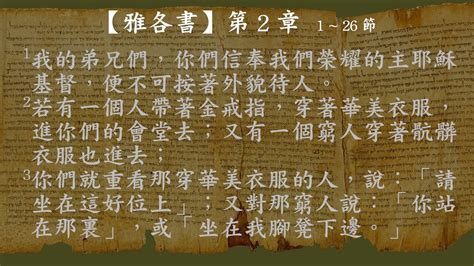 【雅各書】第 2 章 1～26 節
1我的弟兄們，你們信奉我們榮耀的主耶穌
基督，便不可按著外貌待人。
2若有一個人帶著金戒指，穿著華美衣服，
進你們的會堂去；又有一個窮人穿著骯髒
衣服也進去；
3你們就重看那穿華美衣服的人，說：「請
坐在這好位上」；又對那窮人說：「你站
在那裏」，或「坐在我腳凳下邊。」